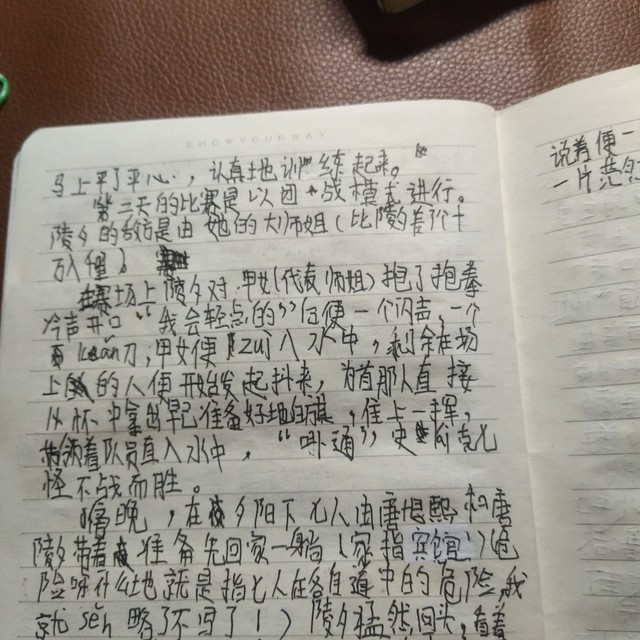 SHOWYOURWAY
马上平了平心，认真地训练起来。
第三天的比赛是以团战模式进行。
陵夕的敌方是由她的大师姐（比陵夕差个十
万八里）
在赛场上陵夕对甲女（代表师姐）抱了抱拳
冷声开口“我会轻点的”白便一个闪声，一个
kǎn刀，甲女便zu入水中，剩余在场
上的人便开始发起抖来，为首那人直接
从怀中拿出早已准备好地白旗，往上一挥，
领着队员直入水中，“哗通”史克
怪不战而胜。
晚，在夕阳下七人由唐 和唐
陵夕带着准备先回家一躺（家指宾馆）（危
险呀什么地就是指七人在各自道中的危险，我
就 sěn 略了不写了！）陵夕猛然回头，看着
说着便一
一片